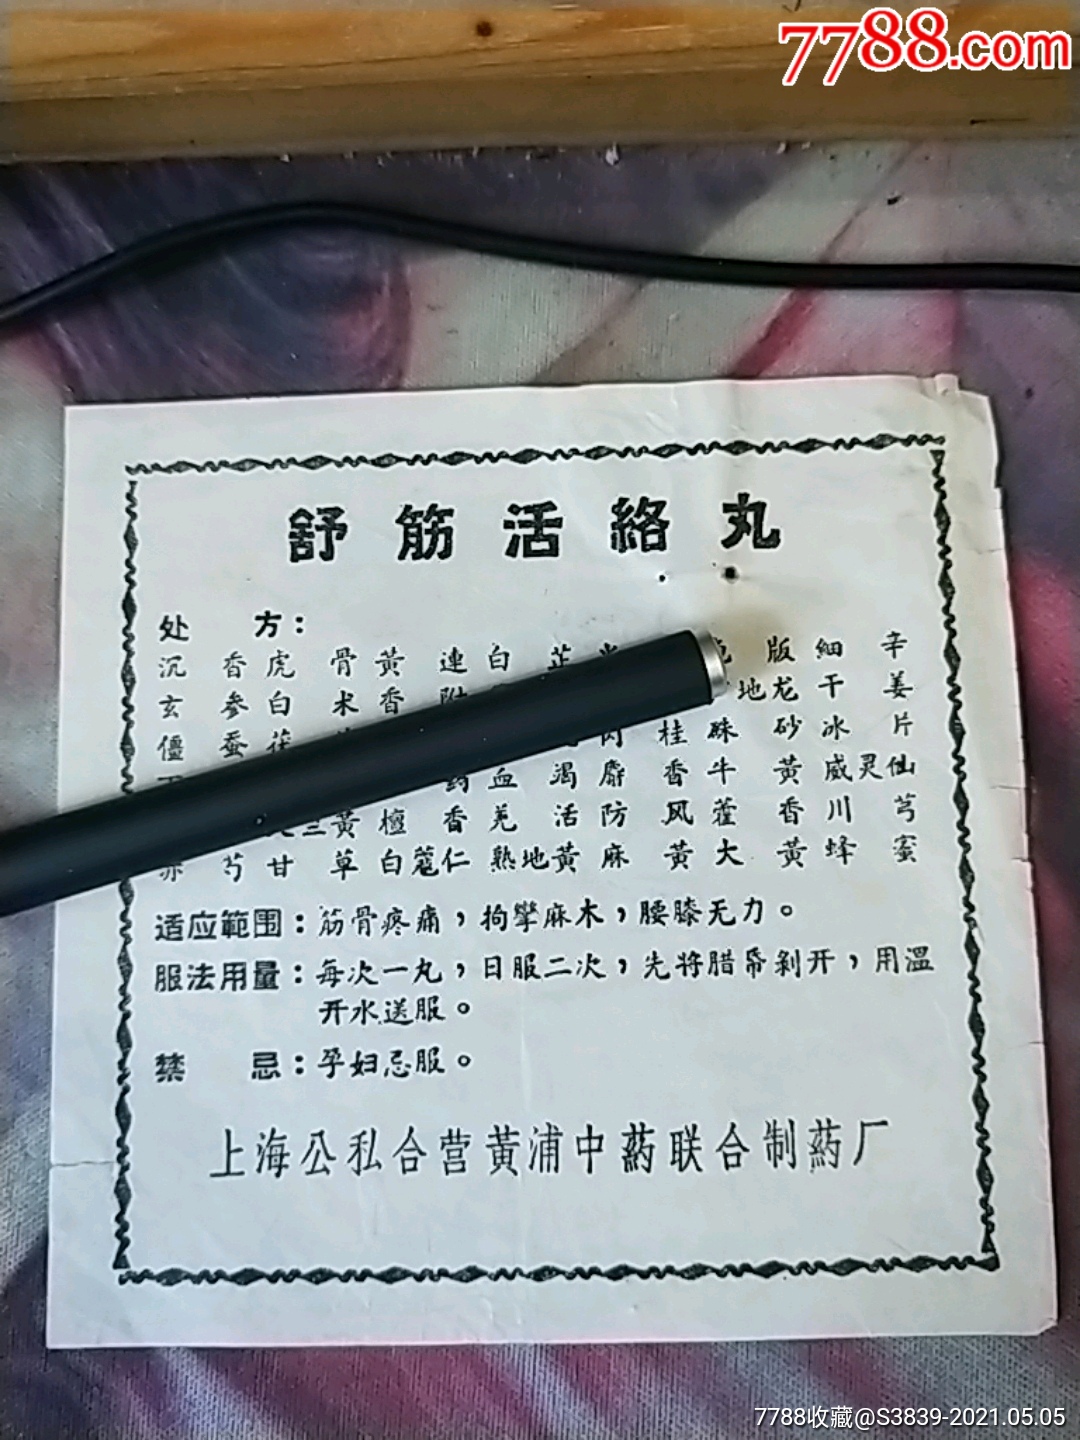 7788.com
舒筋活絡丸
处方：
沉香 虎骨 黃連 白芷 版 細辛
玄参 白术 香附 地龙 干姜
僵蚕 茯 肉桂 硃砂 冰片
血渴 麝香 牛黃 威灵仙
黃 檀香 羌活 防风 藿香 川芎
赤芍 甘草 白蔻仁 熟地黃 麻黃 大黃 蜂蜜
适应範围：筋骨疼痛，拘攣麻木，腰膝无力。
服法用量：每次一丸，日服二次，先将腊帋剝开，用溫
开水送服。
禁忌：孕妇忌服。
上海公私合营黄浦中药联合制药厂
7788收藏@S3839-2021.05.05